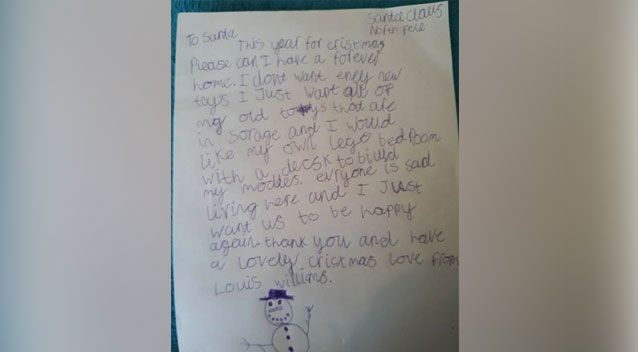 Santa Claus
North pole
To Santa
This year for cristmas
Please can I have a forever
home. I dont want eney new
toys I Just want all of
my old toys that are
in Sorage and I would
like my own lego bedroom
with a decsk to biuld
my moddes. evryone is sad
living here and I Just
want us to be happy
again thank you and have
a lovely cristmas love from
Louis williams.